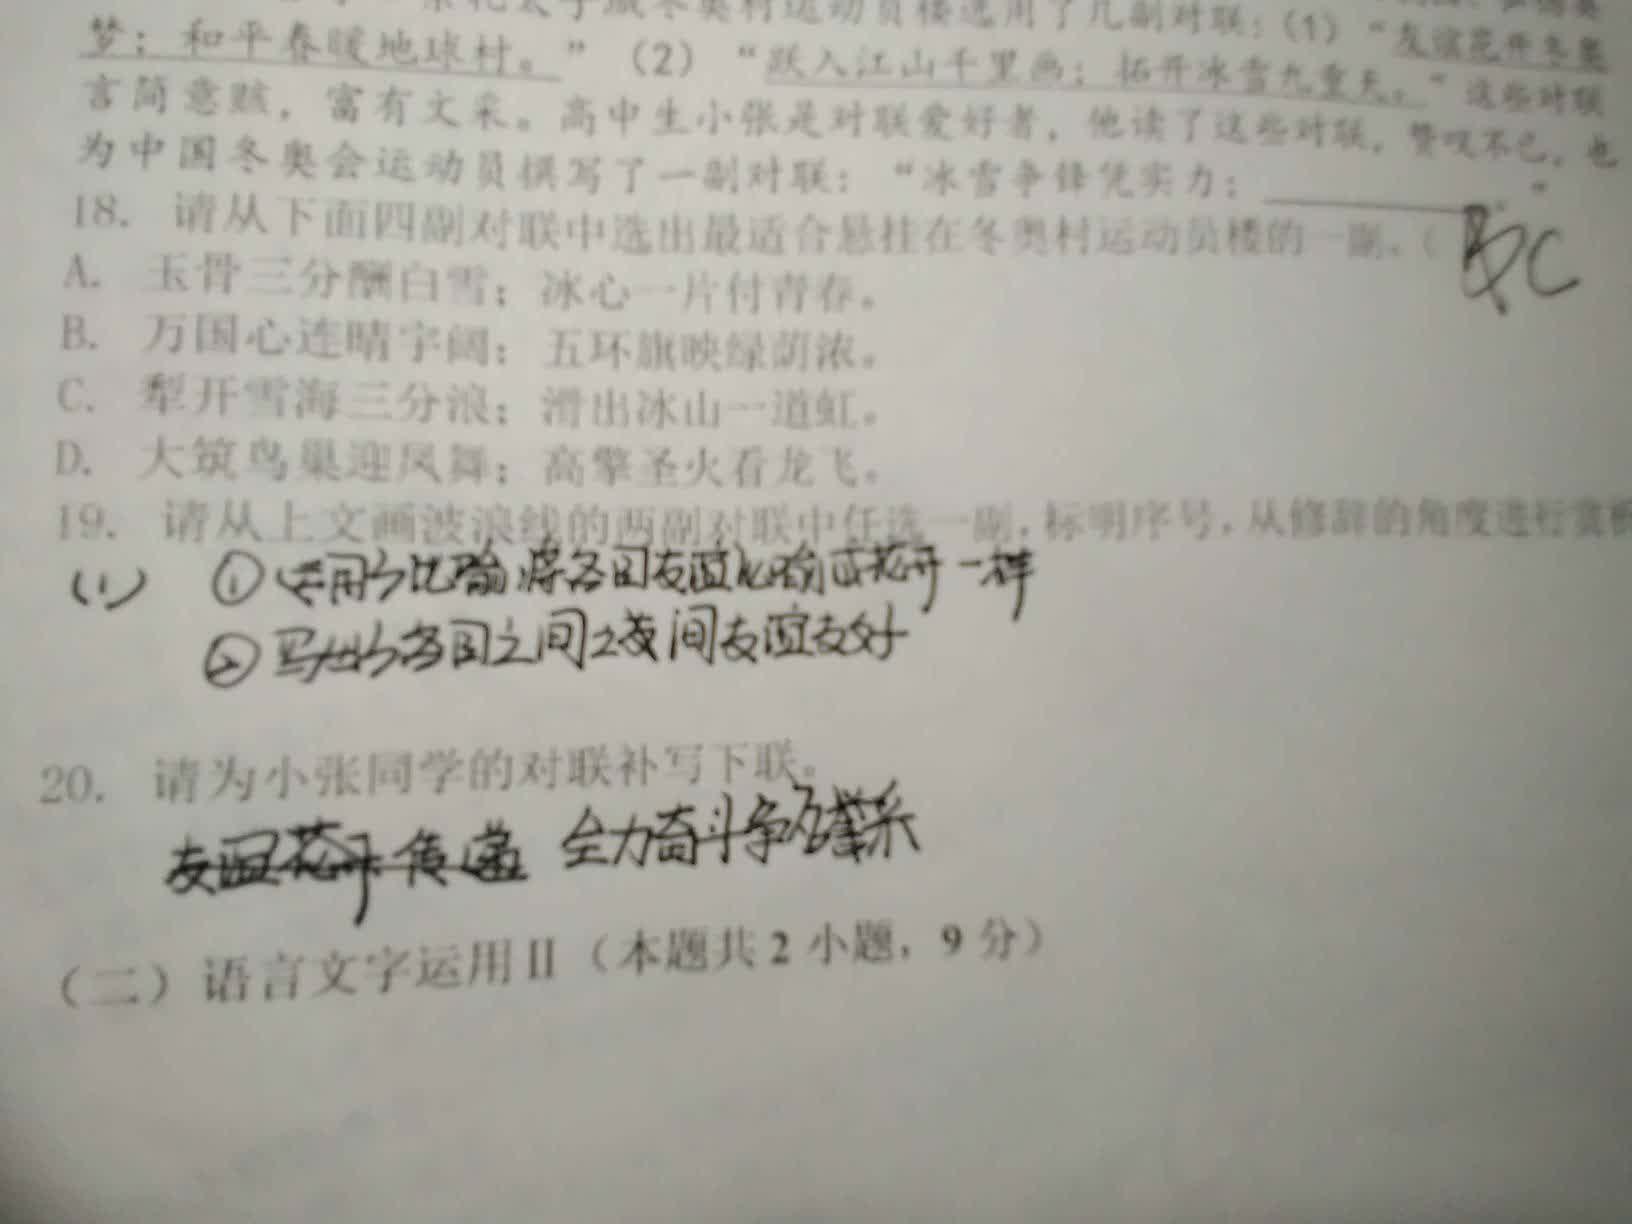 永九太子城冬奥村运动员楼选用了几副对联：(1)“友谊花开冬奥
梦；和平春暖地球村。”(2)“跃入江山千里画；拓开冰雪九重天。”这些对联
言简意赅，富有文采。高中生小张是对联爱好者，他读了这些对联，赞叹不已，也
为中国冬奥会运动员撰写了一副对联：“冰雪争锋凭实力；________。”
18. 请从下面四副对联中选出最适合悬挂在冬奥村运动员楼的一副。( C
A. 玉骨三分酬白雪；冰心一片付青春。
B. 万国心连晴宇阔；五环旗映绿荫浓。
C. 犁开雪海三分浪；滑出冰山一道虹。
D. 大筑鸟巢迎凤舞；高擎圣火看龙飞。
19. 请从上文画波浪线的两副对联中任选一副，标明序号，从修辞的角度进行赏析
(1) ①运用了比喻，将各国友谊比喻成花开一样
②写出了各国之间之间友谊友好
20. 请为小张同学的对联补写下联。
友谊花开传递 全力奋斗争
（二）语言文字运用Ⅱ（本题共2小题，9分）